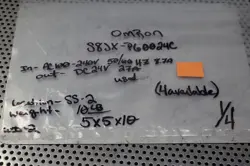 Omron
S8JX-P60024C
In- AC100-240V 50/60HZ 7.7A
out- DC24V 27A
used
(4 available)
Location- SS-2
weight- 10LB
5x5x10
1/4